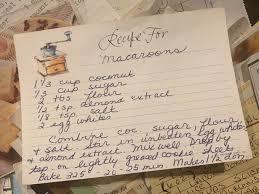 Recipe For
Macaroons
1 1/3 cup coconut
1/3 cup sugar
2 tbs flour
1/2 tsp almond extract
1/8 tsp salt
2 egg whites
Combine coc. sugar, flour,
+ salt. stir in unbeaten egg whites
+ almond extract. Mix well. Drop by
tsp. on lightly greased cookie sheets
Bake 325 - 20-25 min. Makes 1 1/2 doz.